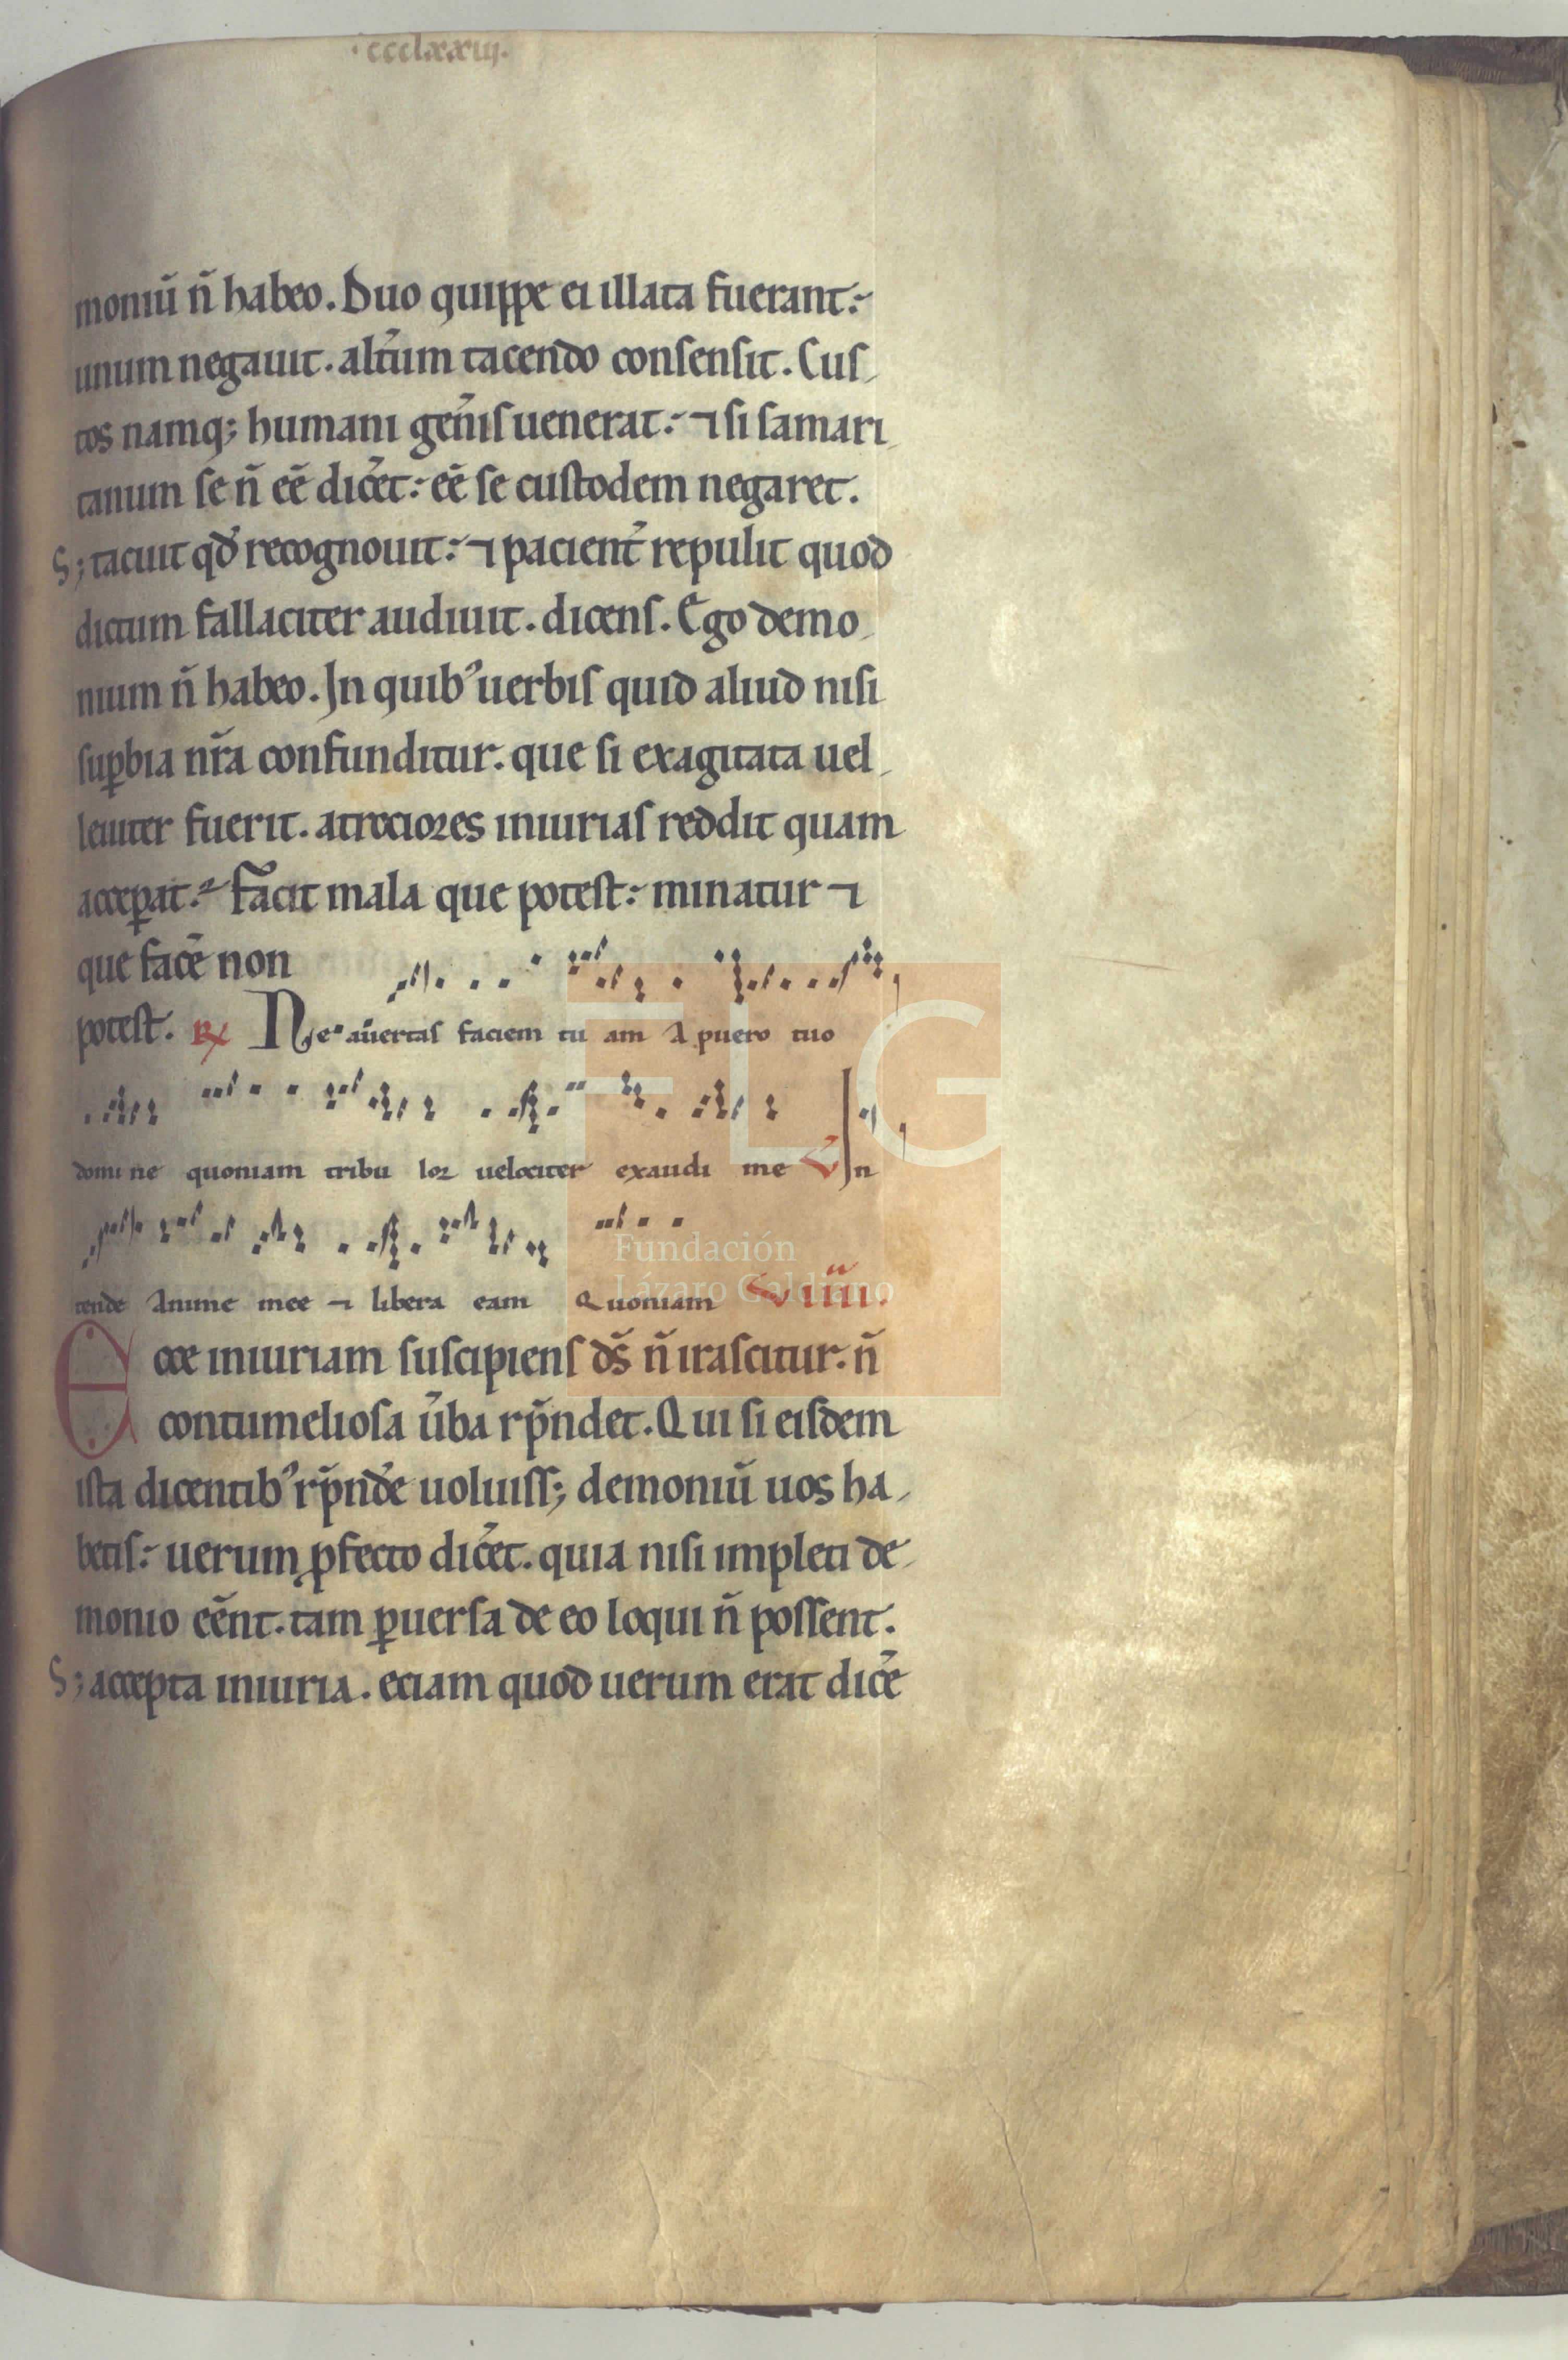 ·ccclxxiij·
moniū n̄ habeo. Duo quippe ei illata fuerant:
unum negauit. alt̄um tacendo consensit. Cus
tos namq; humani gen̄is uenerat: ⁊ si samari
tanum se n̄ eē dic̄et: eē se custodem negaret.
S; tacuit qd̄ recognouit: ⁊ pacient̄ repulit quod
dictum fallaciter audiuit. dicens. Ego demo
nium n̄ habeo. In quib' uerbis quid aliud nisi
suꝑbia nr̄a confunditur. que si exagitata uel
leuiter fuerit. atrociores iniurias reddit quam
acceꝑat. Facit mala que potest: minatur ⁊
que facē non
potest. R℣ Ne auertas faciem tu am A puero tuo
domi ne quoniam tribu lor uelociter exaudi me V̄ In
tende Anime mee ⁊ libera eam Quoniam L viiii.
Ecce iniuriam suscipiens dn̄s n̄ irascitur. n̄
contumeliosa ūba rp̄ndet. Qui si eisdem
ista dicentib' rp̄nde uoluiss; demoniū uos ha
betis: uerum ꝓfecto dic̄et. quia nisi impleti de
monio eēnt. tam ꝑuersa de eo loqui n̄ possent.
S; accepta iniuria. eciam quod uerum erat dicē
FLG
Fundación
Lázaro Galdiano